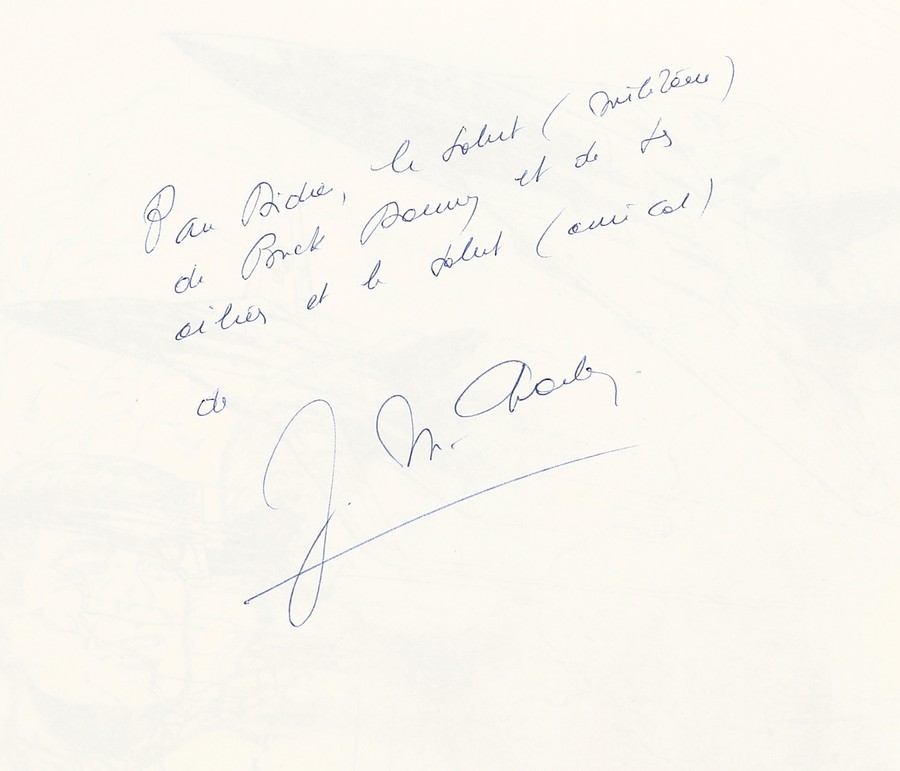 Pour Didier, le salut (militaire)
de Buck Danny et de ses
ailiers et le salut (amical)
de
J. M. Charlier